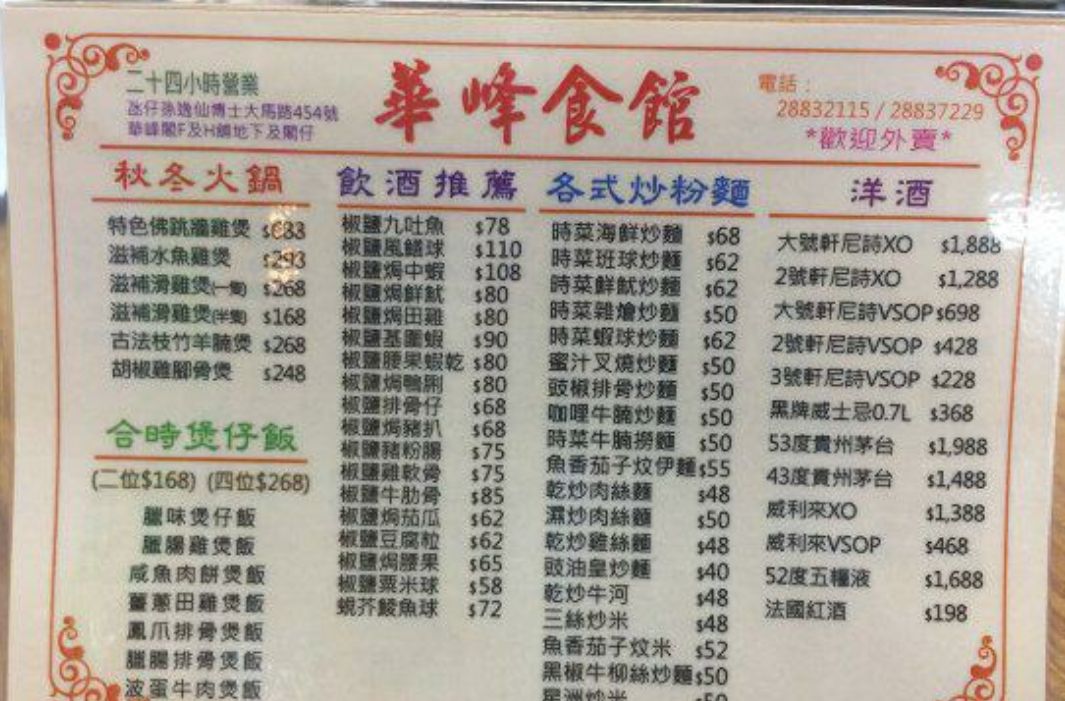 二十四小時營業
氹仔孫逸仙博士大馬路454號
華峰閣F及H舖地下及閣仔
華峰食館
電話：
28832115 / 28837229
*歡迎外賣*
秋冬火鍋
特色佛跳牆雞煲
滋補水魚雞煲 $293
滋補滑雞煲(一隻) $268
滋補滑雞煲(半隻) $168
古法枝竹羊腩煲 $268
胡椒雞腳骨煲 $248
合時煲仔飯
(二位$168) (四位$268)
臘味煲仔飯
臘腸雞煲飯
咸魚肉餅煲飯
薑蔥田雞煲飯
鳳爪排骨煲飯
臘腸排骨煲飯
波蛋牛肉煲飯
飲酒推薦
椒鹽九吐魚 $78
椒鹽風鱔球 $110
椒鹽焗中蝦 $108
椒鹽焗鮮魷 $80
椒鹽焗田雞 $80
椒鹽基圍蝦 $90
椒鹽腰果蝦乾 $80
椒鹽焗鴨脷 $80
椒鹽排骨仔 $68
椒鹽焗豬扒 $68
椒鹽豬粉腸 $75
椒鹽雞軟骨 $75
椒鹽牛肋骨 $85
椒鹽焗茄瓜 $62
椒鹽豆腐粒 $62
椒鹽焗腰果 $65
椒鹽粟米球 $58
蜆芥鯪魚球 $72
各式炒粉麵
時菜海鮮炒麵 $68
時菜班球炒麵 $62
時菜鮮魷炒麵 $62
時菜雜燴炒麵 $50
時菜蝦球炒麵 $62
蜜汁叉燒炒麵 $50
豉椒排骨炒麵 $50
咖哩牛腩炒麵 $50
時菜牛腩撈麵 $50
魚香茄子炆伊麵 $55
乾炒肉絲麵 $48
濕炒肉絲麵 $50
乾炒雞絲麵 $48
豉油皇炒麵 $40
乾炒牛河 $48
三絲炒米 $48
魚香茄子炆米 $52
黑椒牛柳絲炒麵 $50
星洲炒米 $50
洋酒
大號軒尼詩XO $1,888
2號軒尼詩XO $1,288
大號軒尼詩VSOP $698
2號軒尼詩VSOP $428
3號軒尼詩VSOP $228
黑牌威士忌0.7L $368
53度貴州茅台 $1,988
43度貴州茅台 $1,488
威利來XO $1,388
威利來VSOP $468
52度五糧液 $1,688
法國紅酒 $198